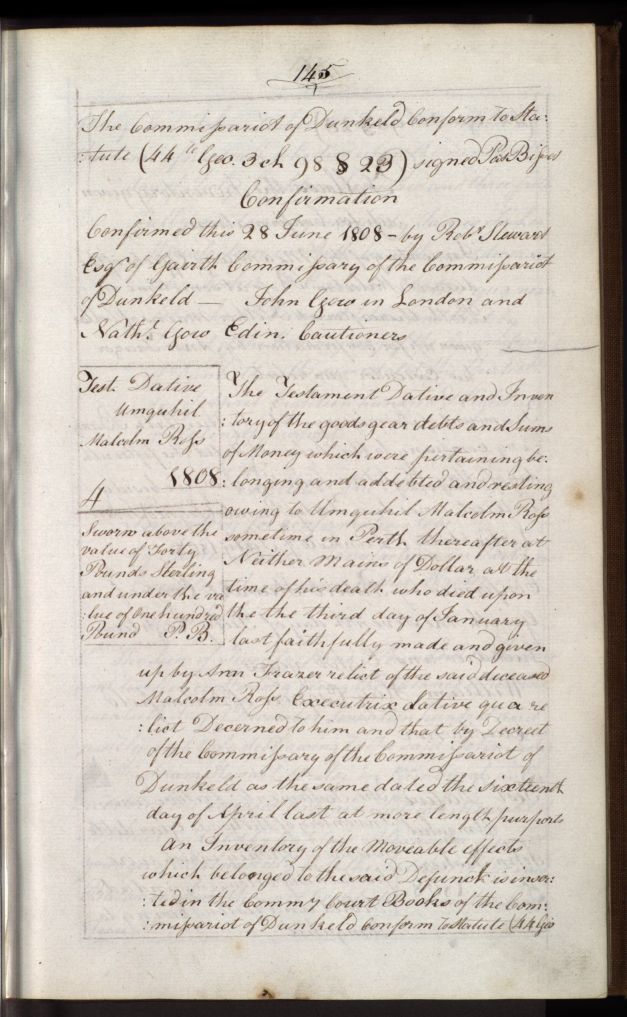 145
The Commissariot of Dunkeld Conform to Sta:
:tute (44th Geo. 3 ch 98 § 23) signed Pat Bisset
Confirmation
Confirmed this 28 June 1808 – by Robt Stewart
Esqr of Gairth Commissary of the Commissariot
of Dunkeld — John Gow in London and
Nathl Gow Edinr Cautioners
Test. Dative
Umquhil
Malcolm Ross
1808
4
Sworn above the
value of Forty
Pounds Sterling
and under the va
:lue of One hundred
Pound P. B.
The Testament Dative and Inven
:tory of the goods gear debts and Sums
of Money which were pertaining be:
:longing and addebted and resting
owing to Umquhil Malcolm Ross
sometime in Perth thereafter at
Neither Mains of Dollar at the
time of his death who died upon
the the third day of January
last faithfully made and given
up by Ann Frazer relict of the said deceased
Malcolm Ross Executrix dative qua re
:lict Decerned to him and that by Decreet
of the Commissary of the Commissariot of
Dunkeld as the same dated the sixteenth
day of April last at more length purports
an Inventory of the Moveable effects
which belonged to the said Defunct is inser:
:ted in the Commy Court Books of the Com:
:missariot of Dunkeld Conform to Statute (44 Geo